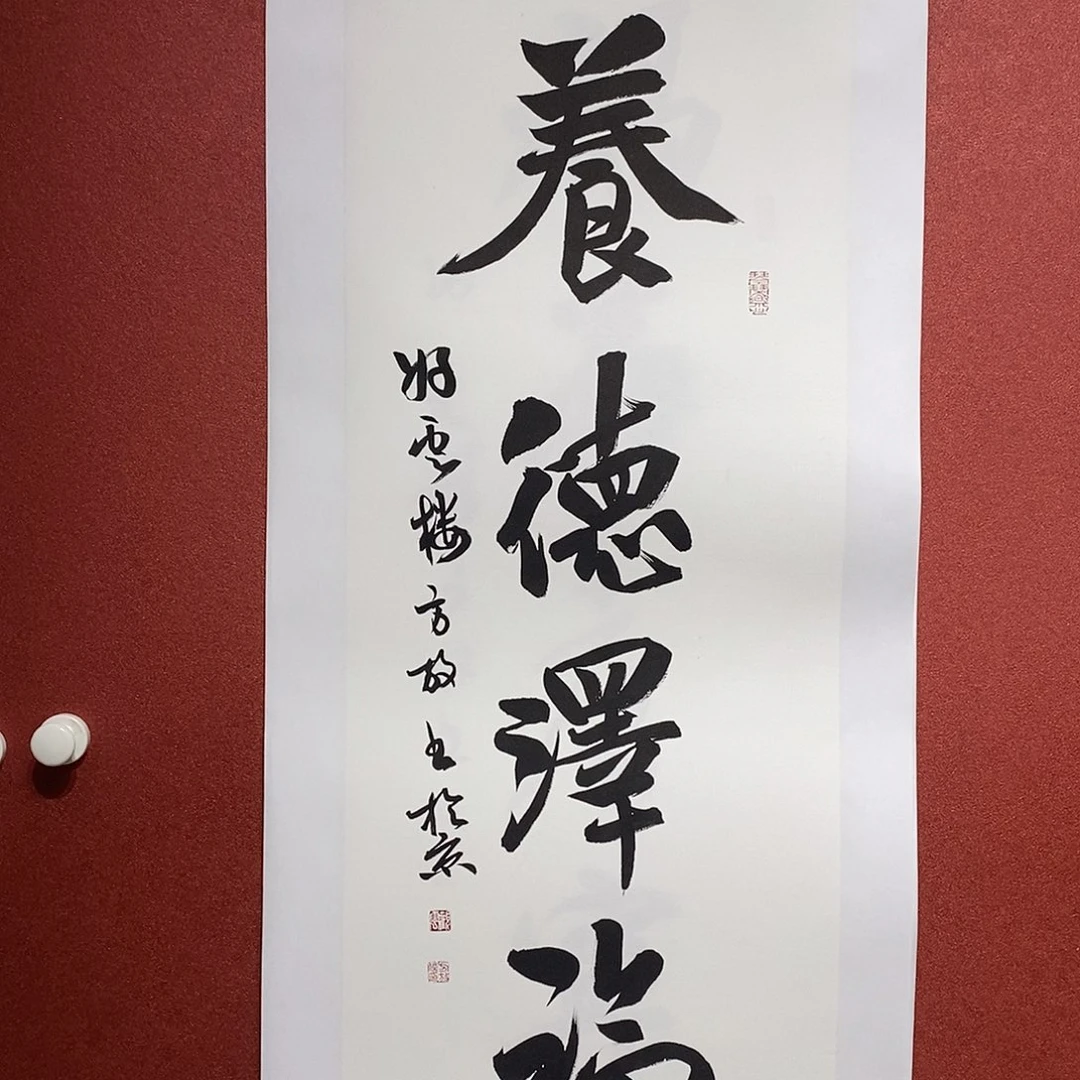 養德澤
好雲楼方放书於京